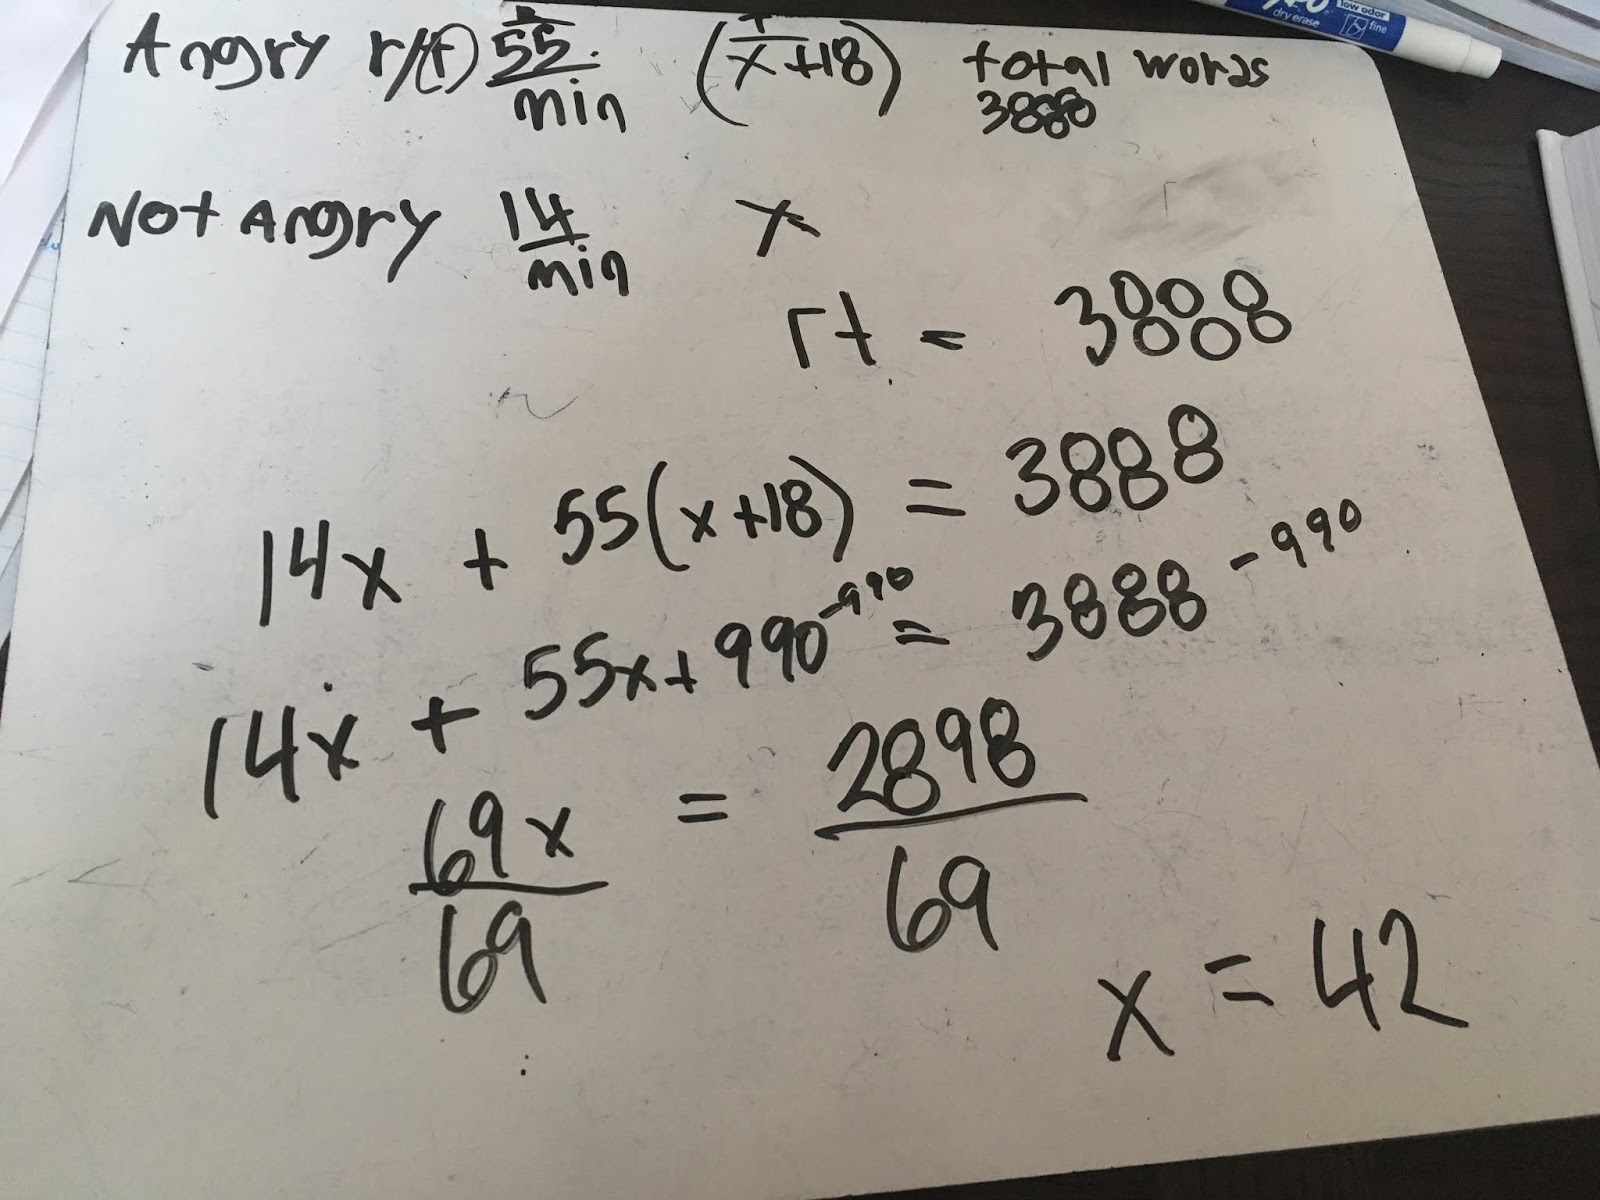 low odor
dry erase
fine
Angry r/(t) 55/min (x+18) total words
3888
Not Angry 14/min x
rt = 3888
14x + 55(x+18) = 3888
14x + 55x+990-990 = 3888-990
69x/69 = 2898/69
x = 42